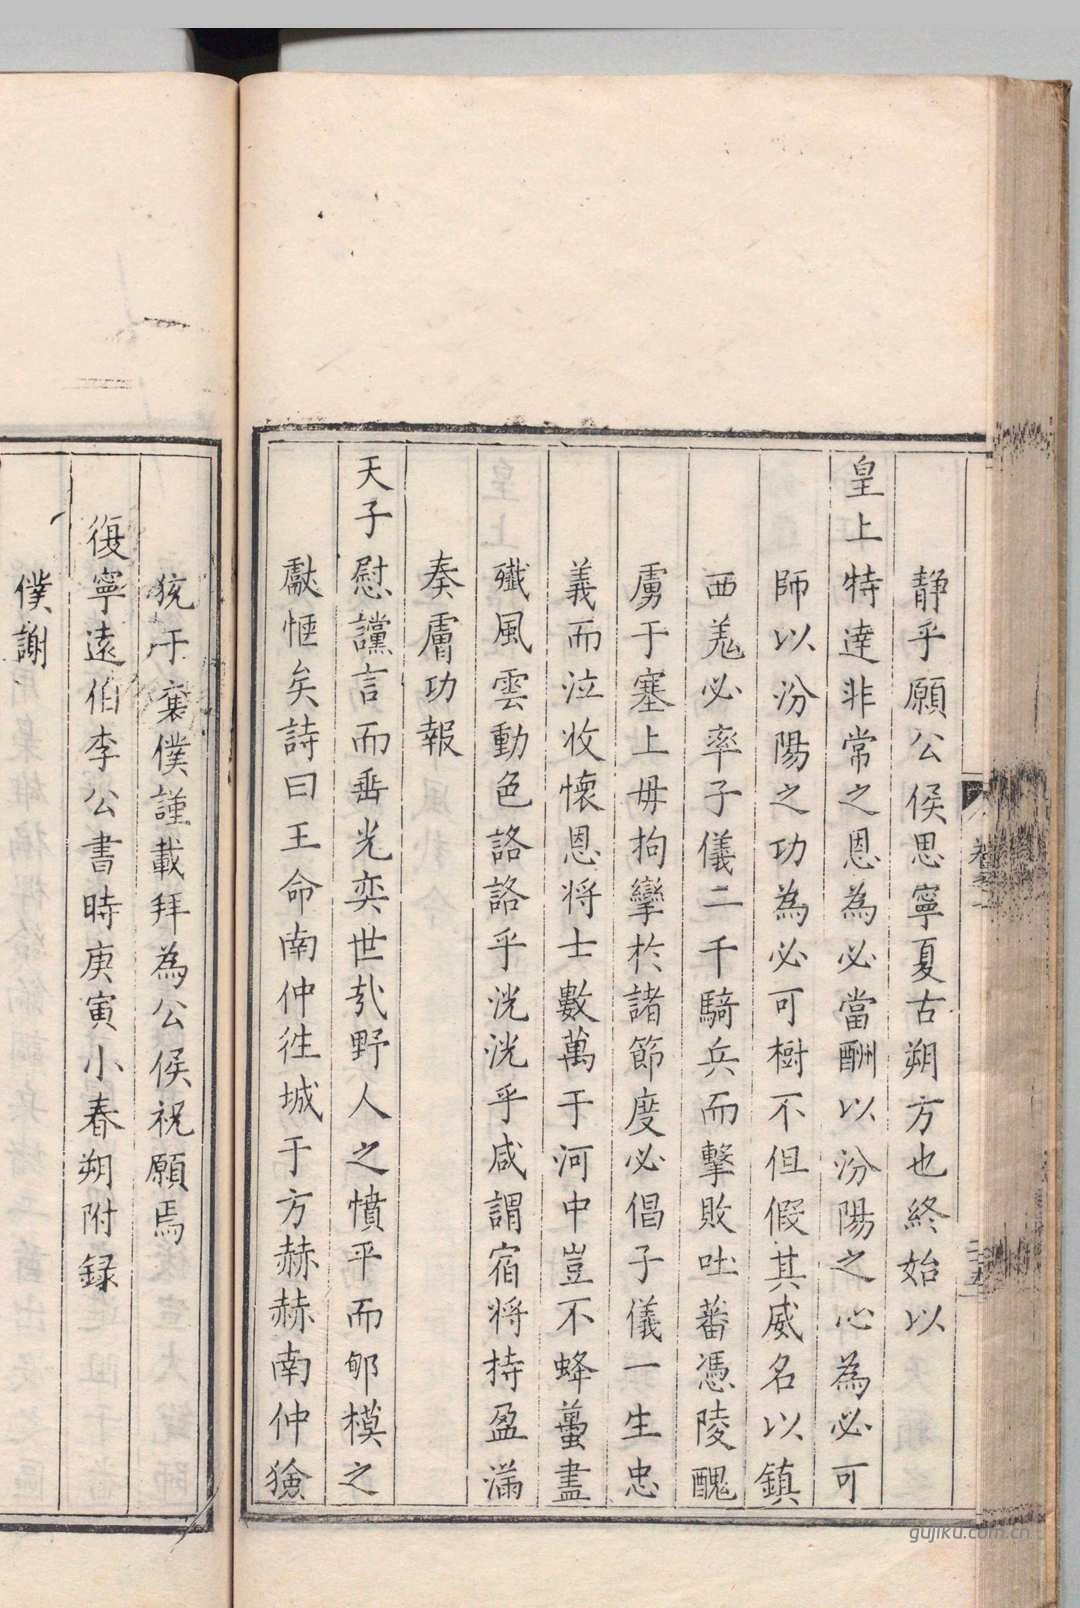 静乎願公侯思寧夏古朔方也終始以
皇上特達非常之恩為必當酬以汾陽之心為必可
師以汾陽之功為必可樹不但假其威名以鎮
西羗必率子儀二千騎兵而擊敗吐蕃憑陵醜
虜于塞上毋拘攣於諸節度必倡子儀一生忠
義而泣收懷恩將士數萬于河中豈不蜂蠆盡
殲風雲動色詻詻乎洸洸乎咸謂宿將持盈滿
奏膚功報
天子慰讜言而垂光奕世㦲野人之憤平而郇模之
獻愜矣詩曰王命南仲徃城于方赫赫南仲獫
狁于襄僕謹載拜為公侯祝願焉
復寧遠伯李公書時庚寅小春朔附録
僕謝
gujiku.com.cn